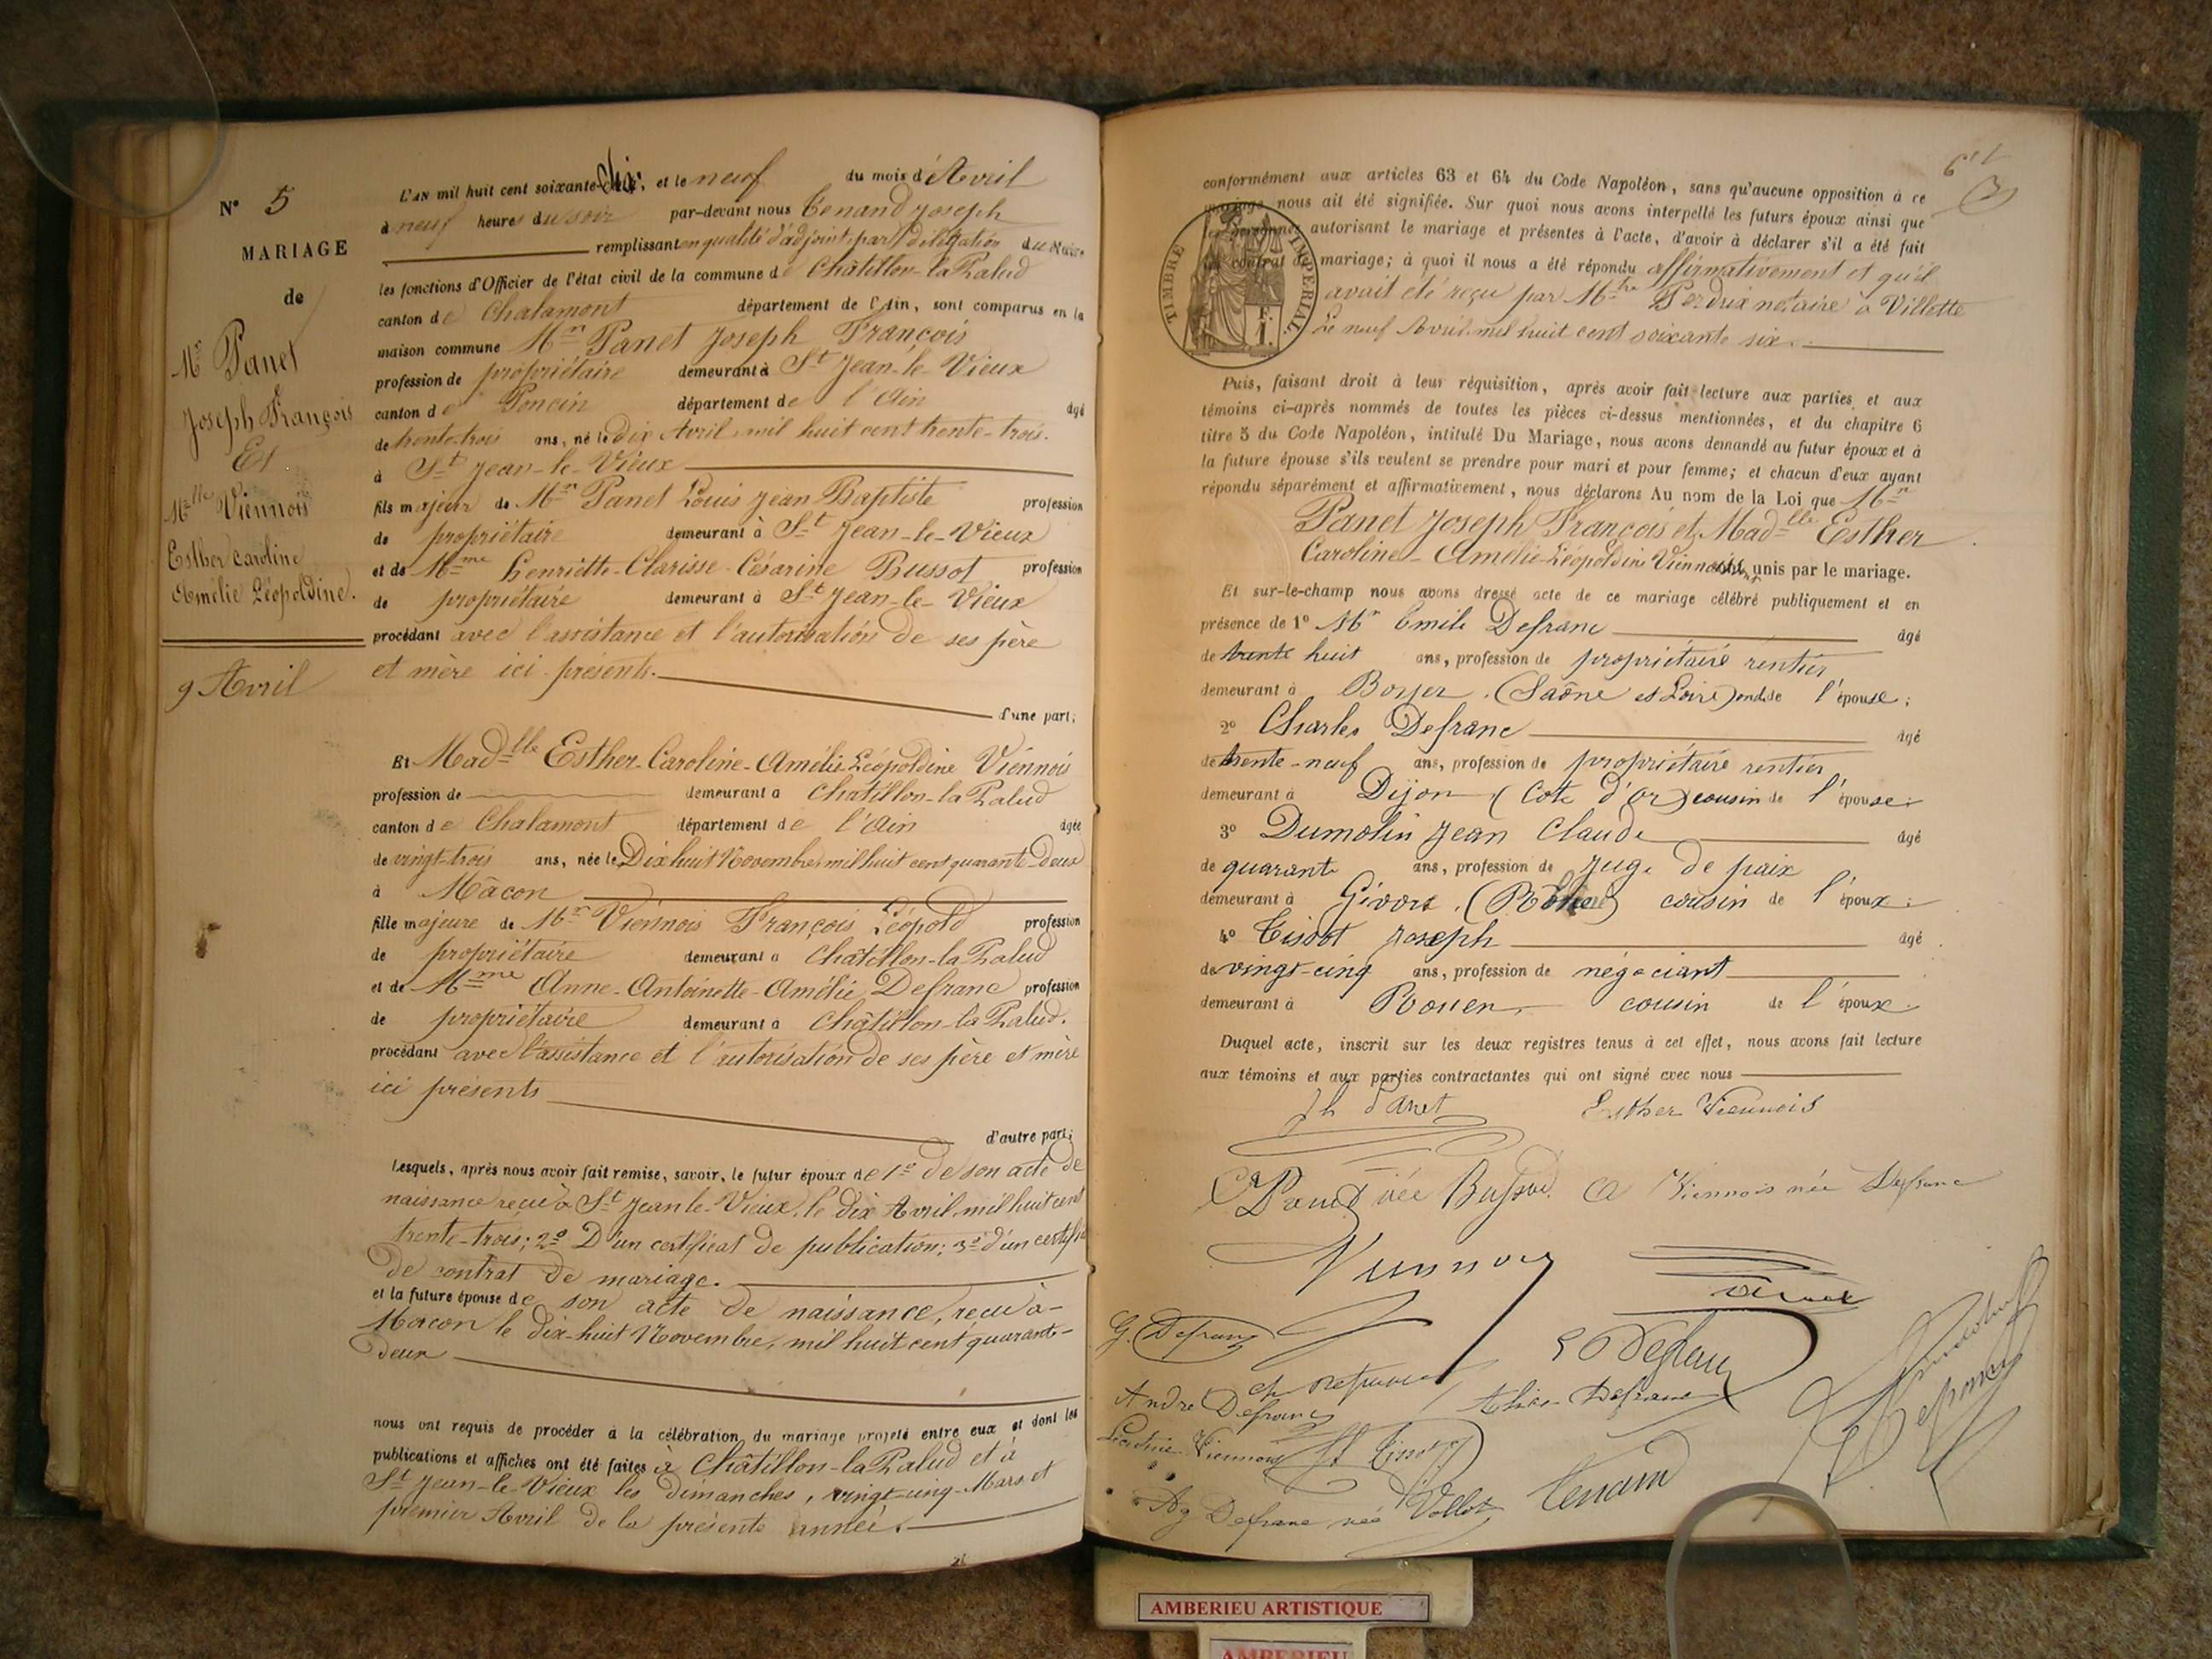 N° 5
MARIAGE
de
Mr Panet
Joseph François
Et
Melle Viennois
Esther Caroline
Amélie Léopoldine.
9 Avril
L'AN mil huit cent soixante-six, et le neuf du mois d'Avril
à neuf heures du soir par-devant nous Tenand Joseph
remplissant en qualité d'adjoint par délégation du Maire
les fonctions d'Officier de l'état civil de la commune de Châtillon-la-Palud
canton de Chalamont département de l'Ain, sont comparus en la
maison commune Mr Panet Joseph François
profession de propriétaire demeurant à St Jean-le-Vieux
canton de Poncin département de l'Ain âgé
de trente-trois ans, né le dix Avril mil huit cent trente-trois.
à St Jean-le-Vieux
fils majeur de Mr Panet Louis Jean Baptiste profession
de propriétaire demeurant à St Jean-le-Vieux
et de Mme Henriette-Clarisse-Césarine Bussot profession
de propriétaire demeurant à St Jean-le-Vieux
procédant avec l'assistance et l'autorisation de ses père
et mère ici présents.
d'une part;
Et Madlle Esther-Caroline-Amélie Léopoldine Viennois
profession de demeurant à Châtillon-la-Palud
canton de Chalamont département de l'Ain âgée
de vingt-trois ans, née le Dix huit Novembre mil huit cent quarante-deux
à Mâcon
fille majeure de Mr Viennois François Léopold profession
de propriétaire demeurant à Châtillon-la-Palud
et de Mme Anne-Antoinette-Amélie Defranc profession
de propriétaire demeurant à Châtillon-la-Palud.
procédant avec l'assistance et l'autorisation de ses père et mère
ici présents
d'autre part;
Lesquels, après nous avoir fait remise, savoir, le futur époux de 1° de son acte de
naissance reçu à St Jean le-Vieux, le dix Avril mil huit cent
trente-trois; 2° D'un certificat de publication; 3° d'un certifi
de contrat de mariage.
et la future épouse de son acte de naissance, reçu à
Macon le dix-huit Novembre, mil huit cent quarante-
deux
nous ont requis de procéder à la célébration du mariage projeté entre eux et dont les
publications et affiches ont été faites à Châtillon-la-Palud et à
St Jean-le-Vieux les dimanches, vingt-cinq Mars et
premier Avril de la présente année.
21
conformément aux articles 63 et 64 du Code Napoléon, sans qu'aucune opposition à ce
mariage nous ait été signifiée. Sur quoi nous avons interpellé les futurs époux ainsi que
les personnes autorisant le mariage et présentes à l'acte, d'avoir à déclarer s'il a été fait
un contrat de mariage; à quoi il nous a été répondu affirmativement et qu'il
avait été reçu par Mtre Perdrix notaire à Villette
Le neuf Avril mil huit cent soixante six.
TIMBRE IMPÉRIAL
Puis, faisant droit à leur réquisition, après avoir fait lecture aux parties et aux
témoins ci-après nommés de toutes les pièces ci-dessus mentionnées, et du chapitre 6
titre 5 du Code Napoléon, intitulé Du Mariage, nous avons demandé au futur époux et à
la future épouse s'ils veulent se prendre pour mari et pour femme; et chacun d'eux ayant
répondu séparément et affirmativement, nous déclarons Au nom de la Loi que Mr
Panet Joseph François et Madlle Esther
Caroline-Amélie-Léopoldine Viennois sont unis par le mariage.
Et sur-le-champ nous avons dressé acte de ce mariage célébré publiquement et en
présence de 1° Mr Emile Defranc âgé
de trente huit ans, profession de propriétaire rentier
demeurant à Boyer (Saône et Loire) de l'épouse;
2° Charles Defranc âgé
de trente-neuf ans, profession de propriétaire rentier
demeurant à Dijon (Cote d'or) cousin de l'épouse;
3° Dumolin Jean Claude âgé
de quarante ans, profession de Juge de paix
demeurant à Givors (Rhône) cousin de l'époux;
4° Tissot Joseph âgé
de vingt-cinq ans, profession de négociant
demeurant à Rouen cousin de l'époux.
Duquel acte, inscrit sur les deux registres tenus à cet effet, nous avons fait lecture
aux témoins et aux parties contractantes qui ont signé avec nous
Jh Panet Esther Viennois
C Panet née Bussod A Viennois née Defranc
Viennois Panet
G. Defranc E Defranc
ch Defranc
André Defranc Alice Defranc
Léontine Viennois Jh Tissot
Ag Defranc née Vollot Tenand
AMBERIEU ARTISTIQUE
AMBERIEU